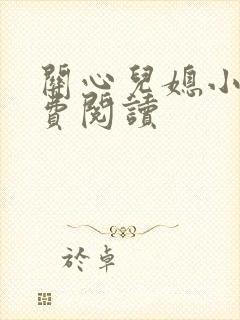 關心兒媳小
費閱讀
於卓